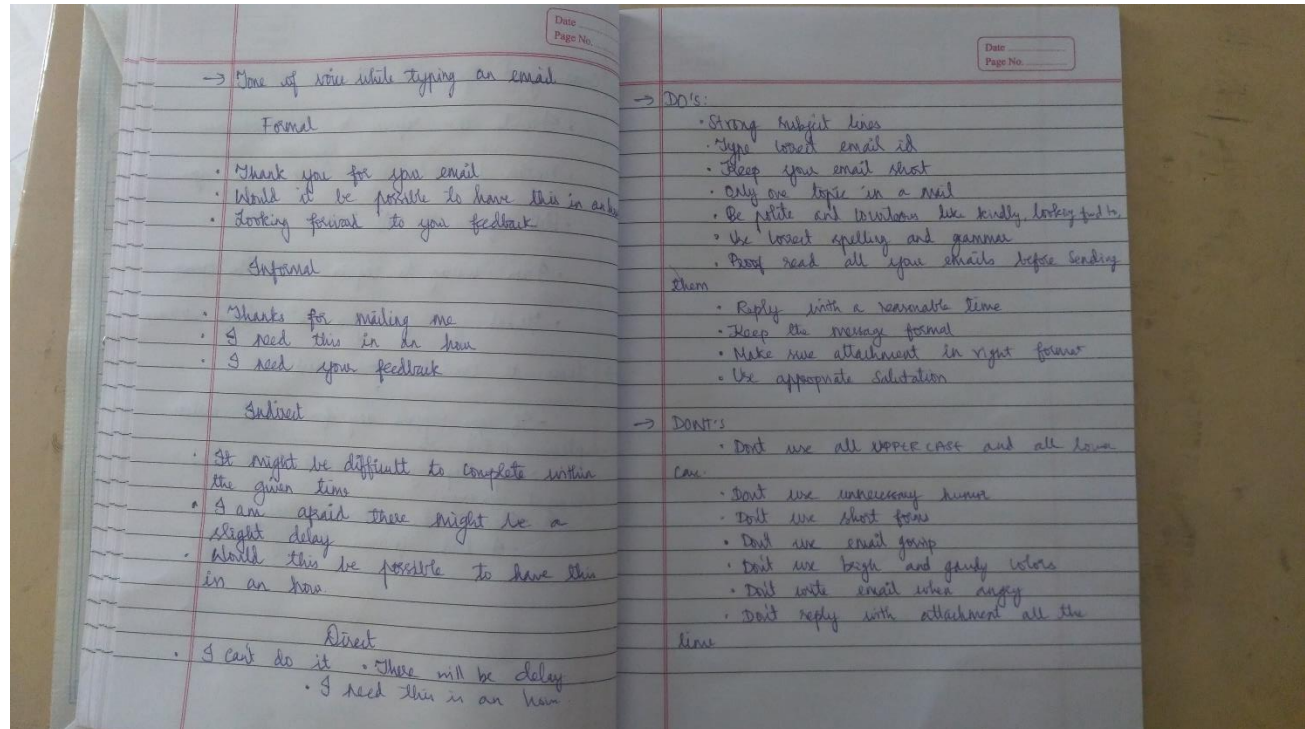 Date
Page No.
→ Tone of voice while typing an email
Formal
• Thank you for your email
• Would it be possible to have this in an
• Looking forward to your feedback
Informal
• Thanks for mailing me
• I need this in an hour
• I need your feedback
Indirect
• It might be difficult to complete within
the given time
• I am afraid there might be a
slight delay
• Would this be possible to have this
in an hour.
Direct
• I can't do it • There will be delay
• I need this is an hour
Date
Page No.
→ DO'S:
• Strong subject lines
• Type correct email id
• Keep your email short
• Only one topic in a mail
• Be polite and like kindly,
• Use correct spelling and grammar
• Proof read all your emails before sending
them
• Reply with a reasonable time
• Keep the message formal
• Make sure attachment in right format
• Use appropriate Salutation
→ DONT'S
• Dont use all UPPER CASE and all lower
case.
• Dont use unnecessary humor
• Don't use short forms
• Dont use email gossip
• Don't use brigh and gaudy colors
• Don't write email when angry
• Don't reply with attachment all the
time